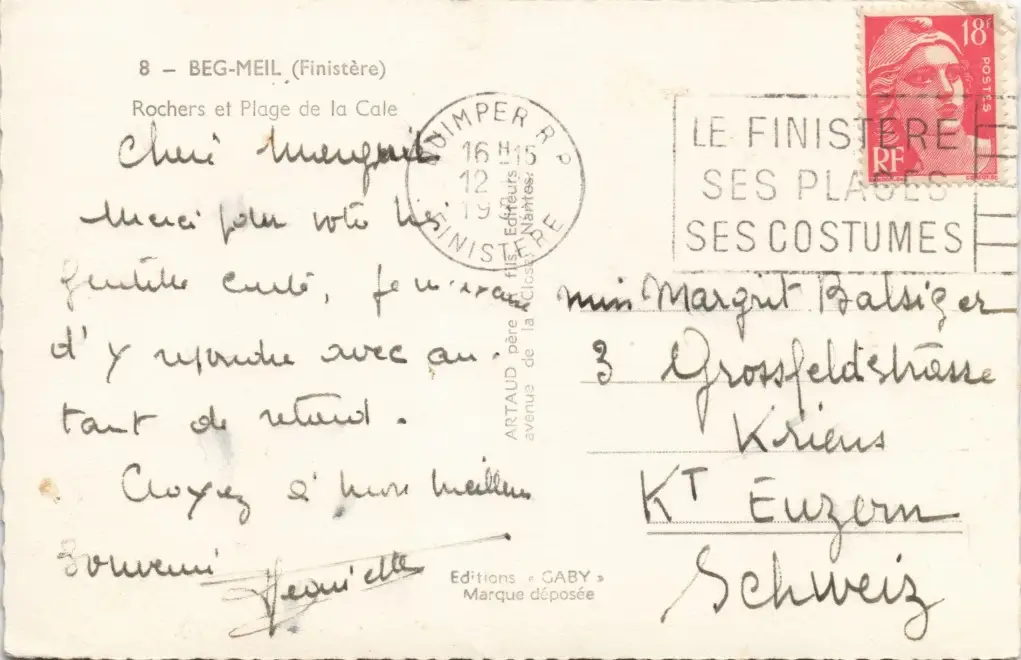 8 – BEG-MEIL (Finistère)
Rochers et Plage de la Cale
Merci pour votre très
gentille carte,
d'y répondre avec au-
tant de retard.
Croyez à mon meilleur
Souvenir
QUIMPER R P
16 H 15
12
19
FINISTERE
LE FINISTERE
SES PLAGES
SES COSTUMES
18F
POSTES
RF
ARTAUD père & fils, Editeurs
avenue de la Close, Nantes
Miss Margrit Balsiger
3 Grossfeldstrasse
Kriens
KT Luzern
Schweiz
Editions « GABY »
Marque déposée